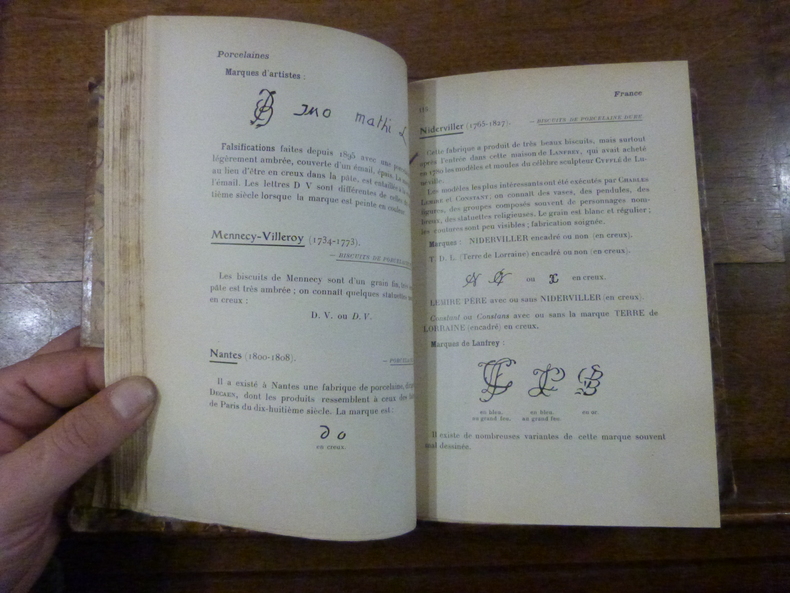 Porcelaines
Marques d'artistes :
Jno mathi
Falsifications faites depuis 1895 avec une
légèrement ambrée, couverte d'un émail épais. La
au lieu d'être en creux dans la pâte, est entaillée
l'émail. Les lettres D V sont différentes de celles
tième siècle lorsque la marque est peinte en couleur.
Mennecy-Villeroy (1734-1773).
— BISCUITS DE PORCELAINE
Les biscuits de Mennecy sont d'un grain fin,
pâte est très ambrée ; on connaît quelques statuettes
en creux :
D. V. ou D. V.
Nantes (1800-1808).
Il a existé à Nantes une fabrique de porcelaine,
DECAEN, dont les produits ressemblent à ceux des
de Paris du dix-huitième siècle. La marque est :
en creux.
France
Niderviller (1765-1827).
— BISCUITS DE PORCELAINE DURE.
Cette fabrique a produit de très beaux biscuits, mais surtout
après l'entrée dans cette maison de LANFREY, qui avait acheté
en 1780 les modèles et moules du célèbre sculpteur CYFFLÉ de Lu-
néville.
Les modèles les plus intéressants ont été exécutés par CHARLES
LEMIRE et CONSTANT ; on connaît des vases, des pendules, des
figures, des groupes composés souvent de personnages nom-
breux, des statuettes religieuses. Le grain est blanc et régulier ;
les coutures sont peu visibles ; fabrication soignée.
Marques : NIDERVILLER encadré ou non (en creux).
T. D. L. (Terre de Lorraine) encadré ou non (en creux).
ou en creux.
LEMIRE PÈRE avec ou sans NIDERVILLER (en creux).
Constant ou Constans avec ou sans la marque TERRE de
LORRAINE (encadré) en creux.
Marques de Lanfrey :
en bleu. en bleu. en or.
au grand feu. au grand feu.
Il existe de nombreuses variantes de cette marque souvent
mal dessinés.